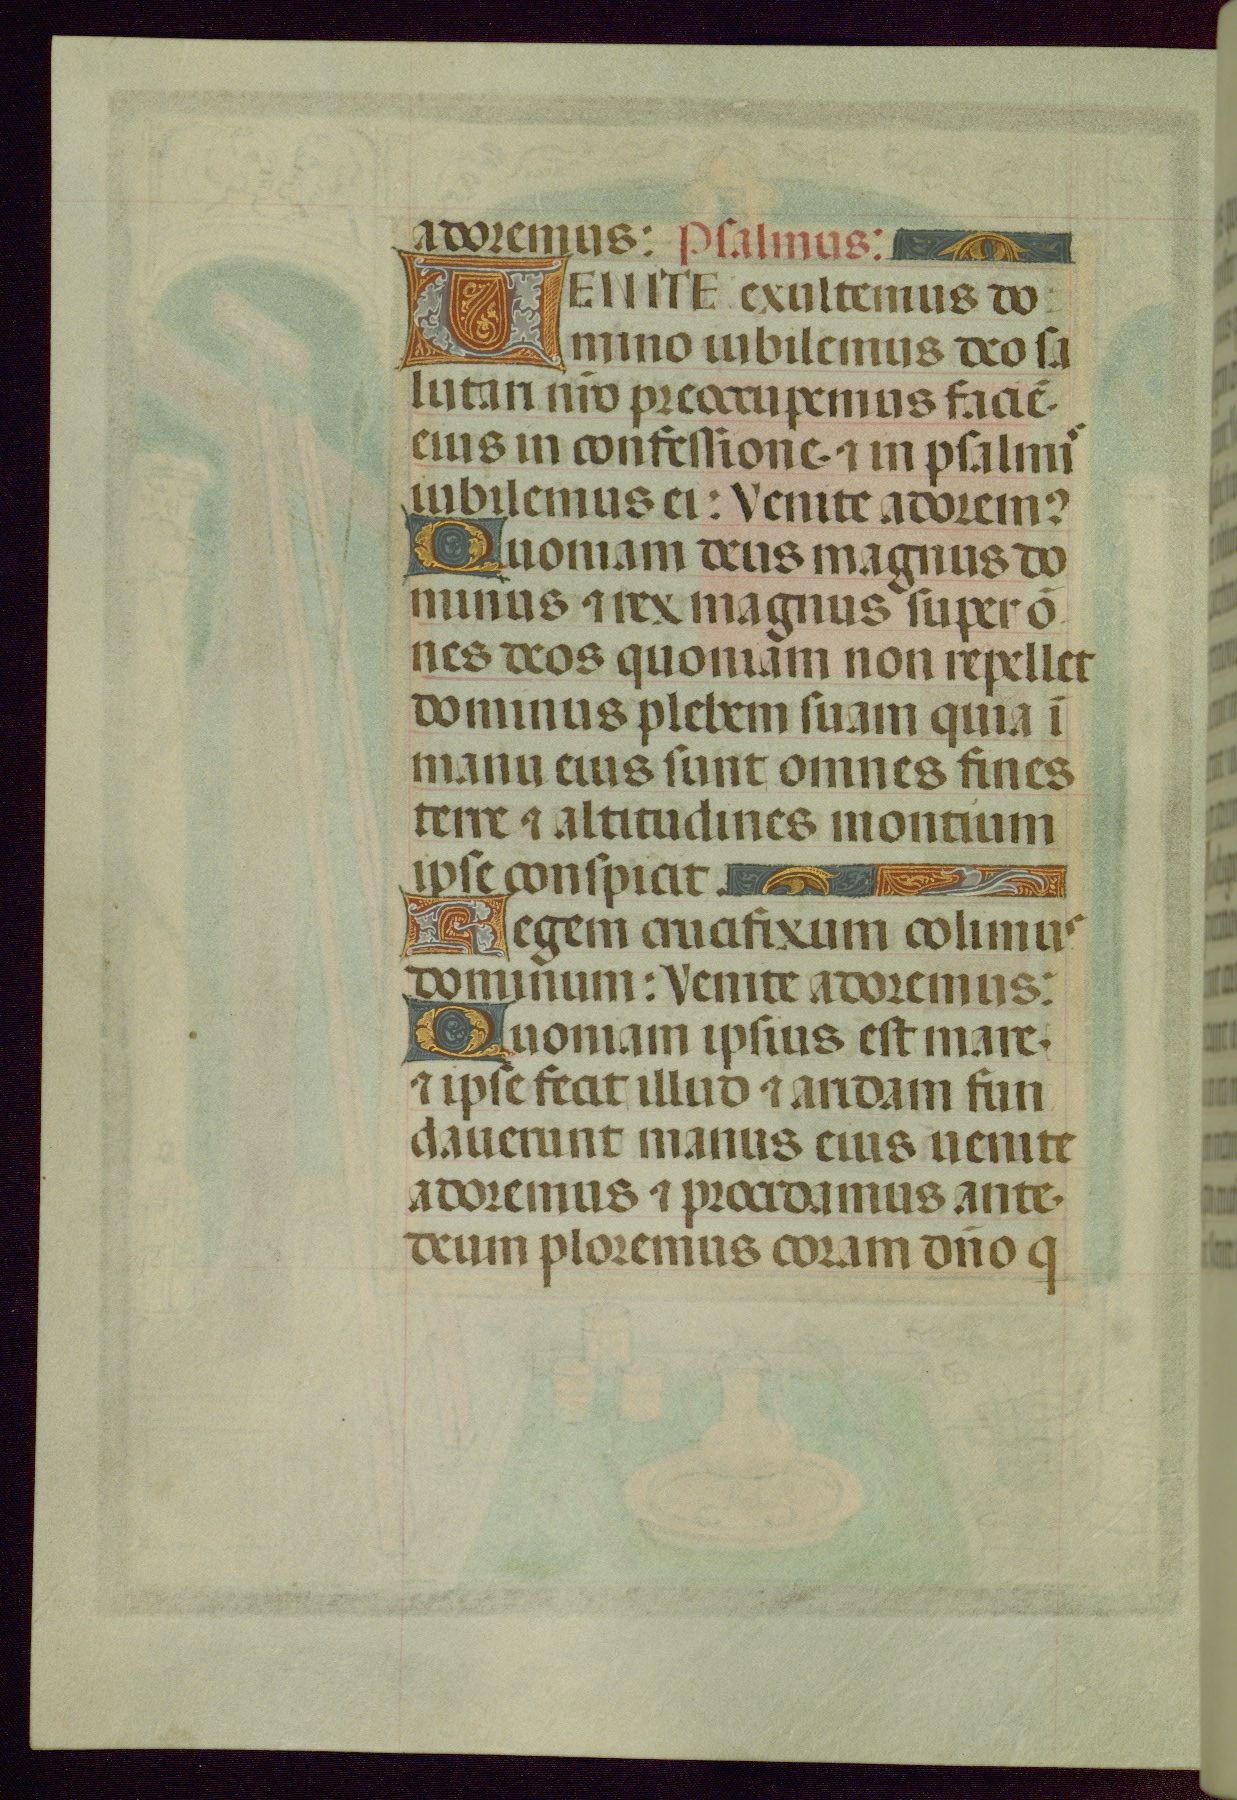 adoremus: Psalmus:
VENITE exultemus do
mino iubilemus deo sa
lutari nr̄o preoccupemus faciē
eius in confessione. ⁊ in psalmis
iubilemus ei: Venite adorem?
Quoniam deus magnus do
minus ⁊ rex magnus super ō
nes deos quoniam non repellet
dominus plebem suam quia ī
manu eius sunt omnes fines
terre ⁊ altitudines montium
ipse conspicit.
Regem crucifixum colimus
dominum: Venite adoremus:
Quoniam ipsius est mare.
⁊ ipse fecit illud ⁊ aridam fun
dauerunt manus eius uenite
adoremus ⁊ procidamus ante.
deum ploremus coram dn̄o q